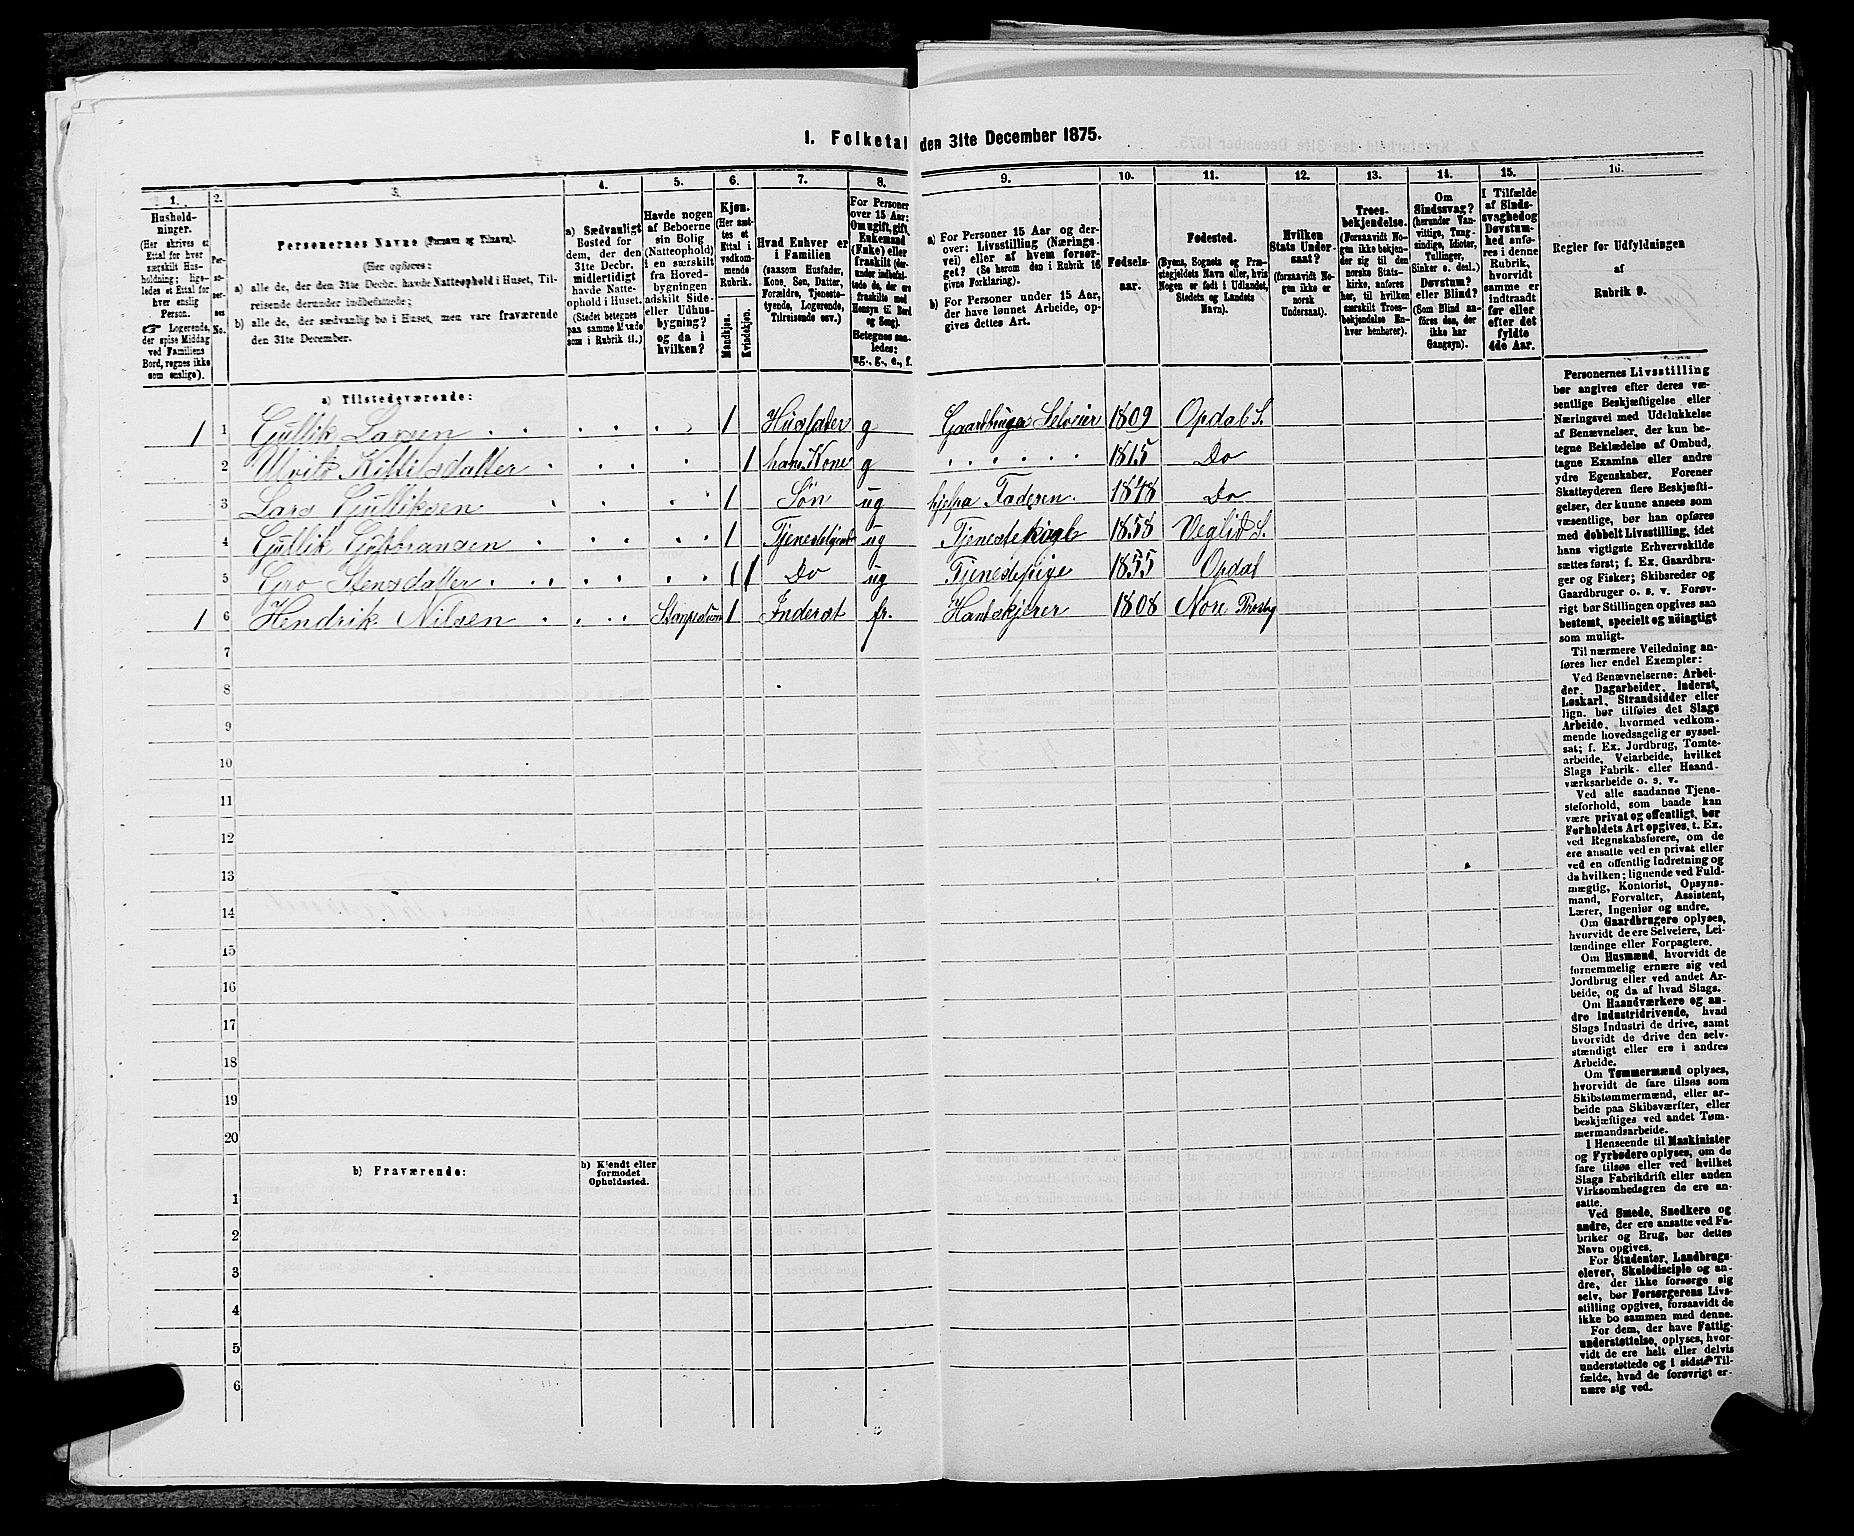 1. Folketal den 31te December 1875.
1.
Hushold-
ninger.
(Her skrives et
Ettal for hver
særskilt Hus-
holdning; lige-
ledes et Ettal for
hver enslig
Person.
☞ Logerende,
der spise Middag
ved Familiens
Bord, regnes ikke
som enslige).
2.
Per-
so-
ner-
nes
No.
3.
Personernes Navne (Fornavn og Tilnavn).
(Her opføres:
a) alle de, der den 31te Decbr. havde Natteophold i Huset, Til-
reisende derunder indbefattede;
b) alle de, der sædvanlig bo i Huset, men vare fraværende
den 31te December.
4.
a) Sædvanligt
Bosted for
dem, der den
31te Decbr.
midlertidigt
havde Natte-
ophold i Huset.
(Stedet betegnes
paa samme Maade
som i Rubrik 11.)
5.
Havde nogen
af Beboerne
sin Bolig
(Natteophold)
i en særskilt
fra Hoved-
bygningen
adskilt Side-
eller Udhus-
bygning?
og da i
hvilken?
6.
Kjøn.
(Her sæt-
tes et
Ettal i
vedkom-
mende
Rubrik.
Mandkjøn.
Kvindekjøn.
7.
Hvad Enhver er
i Familien
(saasom Husfader,
Kone, Søn, Datter,
Forældre, Tjeneste-
tyende, Logerende,
Tilreisende osv.)
8.
For Personer
over 15 Aar:
Om ugift, gift,
Enkemand
(Enke) eller
fraskilt (der-
under indbefat-
tede de, der ere
fraskilte med
Hensyn til Bord
og Seng).
Betegnes saa-
ledes:
ug., g., e., f.
9.
a) For Personer 15 Aar og der-
over: Livsstilling (Nærings-
vei) eller af hvem forsør-
get? (Se herom den i Rubrik 16
givne Forklaring).
b) For Personer under 15 Aar,
der have lønnet Arbeide, op-
gives dettes Art.
10.
Fødsels-
aar.
11.
Fødested.
(Byens, Sognets og Præ-
stegjeldets Navn eller, hvis
Nogen er født i Udlandet,
Stedets og Landets
Navn).
12.
Hvilken
Stats Under-
saat?
(forsaavidt No-
gen ikke er
norsk
Undersaat).
13.
Troes-
bekjendelse.
(Forsaavidt No-
gen ikke bekjen-
der sig til den
norske Stats-
kirke, anføres
her, til hvilken
særskilt Troes-
bekjendelse En-
hver henhører).
14.
Om
Sindssvag?
(herunder Van-
vittige, Tung-
sindige, Idioter,
Tullinger,
Sinker o. desl.)
Døvstum?
eller Blind?
(Som Blind an-
føres den, der
ikke har
Gangsyn).
15.
I Tilfælde
af Sinds-
svaghed og
Døvstum-
hed anfø-
res i denne
Rubrik,
hvorvidt
samme er
indtraadt
før eller
efter det
fyldte
4de Aar.
16.
Regler for Udfyldningen
af
Rubrik 9.
a) Tilstedeværende:
1 1 Gullik Larsen 1 Husfader g Gaardbruger Selveier 1809 Opdal S.
2 Kittilsdatter 1 hans Kone g 1815 Do
3 Lars Gulliksen 1 Søn ug hjelpa Faderen 1848 Do
4 Gullik 1 Tjenestetyende ug Tjenestekarl 1858 Veglid S.
5 Gro Stensdatter 1 1 Do ug Tjenestepige 1855 Opdal
1 6 Hendrik Nilsen 1 Inderst fr. 1808 Nore
7
8
9
10
11
12
13
14
15
16
17
18
19
20
b) Fraværende:
b) Kjendt eller
formodet
Opholdssted.
1
2
3
4
5
6
Personernes Livsstilling
bør angives efter deres væ-
sentlige Beskjæftigelse eller
Næringsvei med Udelukkelse
af Benævnelser, der kun be-
tegne Beklædelse af Ombud,
tagne Examina eller andre
ydre Egenskaber. Forener
Skatteyderen flere Beskjæfti-
gelser, der kunne ansees som
væsentlige, bør han opføres
med dobbelt Livsstilling, idet
hans vigtigste Erhvervskilde
sættes først; f. Ex. Gaardbru-
ger og Fisker; Skibsreder og
Gaardbruger o. s. v. Forøv-
rigt bør Stillingen opgives saa
bestemt, specielt og nøiagtigt
som muligt.
Til nærmere Veiledning an-
føres her endel Exempler:
Ved Benævnelserne: Arbei-
der, Dagarbeider, Inderst,
Løskarl, Strandsidder eller
lign. bør tilføies det Slags
Arbeide, hvormed vedkom-
mende hovedsagelig er syssel-
sat; f. Ex. Jordbrug, Tomte-
arbeide, Veiarbeide, hvilket
Slags Fabrik- eller Haand-
værksarbeide o. s. v.
Ved alle saadanne Tjene-
steforhold, som baade kan
være privat og offentligt, bør
Forholdets Art opgives, t. Ex.
ved Regnskabsførere, om de
ere ansatte ved en privat eller
ved en offentlig Indretning og
da hvilken; lignende ved Fuld-
mægtig, Kontorist, Opsyns-
mand, Forvalter, Assistent,
Lærer, Ingeniør og andre.
Om Gaardbrugere oplyses,
hvorvidt de ere Selveiere, Lei-
lændinge eller Forpagtere.
Om Husmænd, hvorvidt de
fornemmelig ernære sig ved
Jordbrug eller ved andet Ar-
beide, og da af hvad Slags.
Om Haandværkere og an-
dre Industridrivende, hvad
Slags Industri de drive, samt
hvorvidt de drive den selv-
stændigt eller ere i andres
Arbeide.
Om Tømmermænd oplyses,
hvorvidt de fare tilsøs som
Skibstømmermænd, eller ar-
beide paa Skibsværfter, eller
beskjæftiges ved andet Tøm-
mermandsarbeide.
I Henseende til Maskinister
og Fyrbødere oplyses, om de
fare tilsøs eller ved hvilket
Slags Fabrikdrift eller anden
Virksomhedsgren de ere an-
satte.
Ved Smede, Snedkere og
andre, der ere ansatte ved Fa-
briker og Brug, bør dettes
Navn opgives.
For Studenter, Landbrugs-
elever, Skoledisciple og an-
dre, der ikke forsørge sig
selv, bør Forsørgerens Livs-
stilling opgives, forsaavidt de
ikke bo sammen med denne.
For dem, der have Fattig-
understøttelse, oplyses, hvor-
vidt de ere helt eller delvis
understøttede og i sidste Til-
fælde, hvad de forøvrigt er-
nære sig ved.